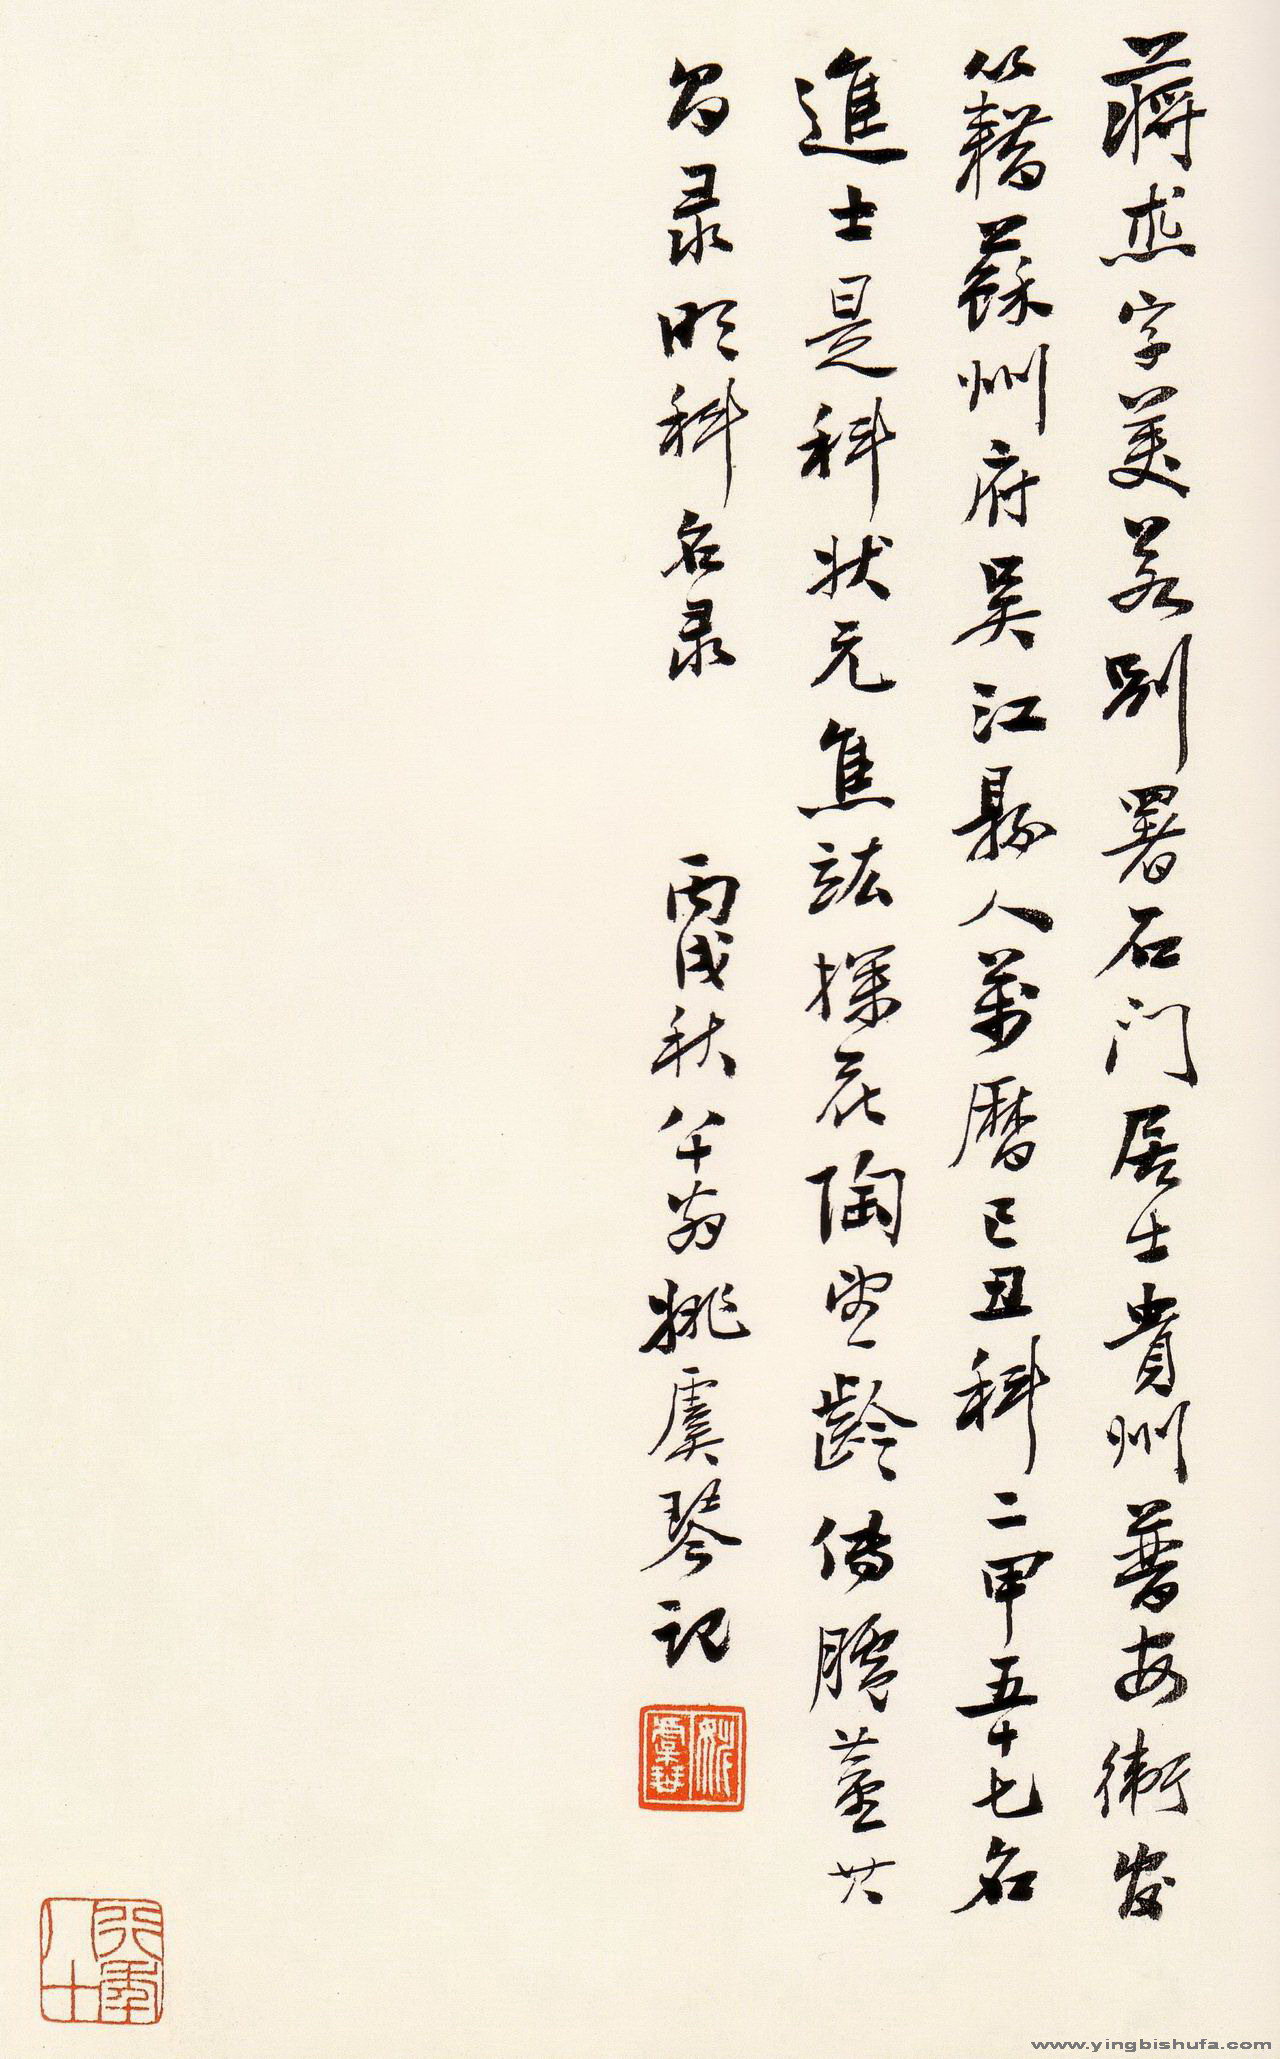 蔣杰字美若别署石门居士貴州普安衛官
籍蘇州府吴江縣人萬曆己丑科二甲五十七名
進士是科状元焦竑探花陶望齡傳臚董其
昌录明科名录 丙戌秋八十翁姚虞琴記
姚虞琴
行年八十
www.yingbishufa.com